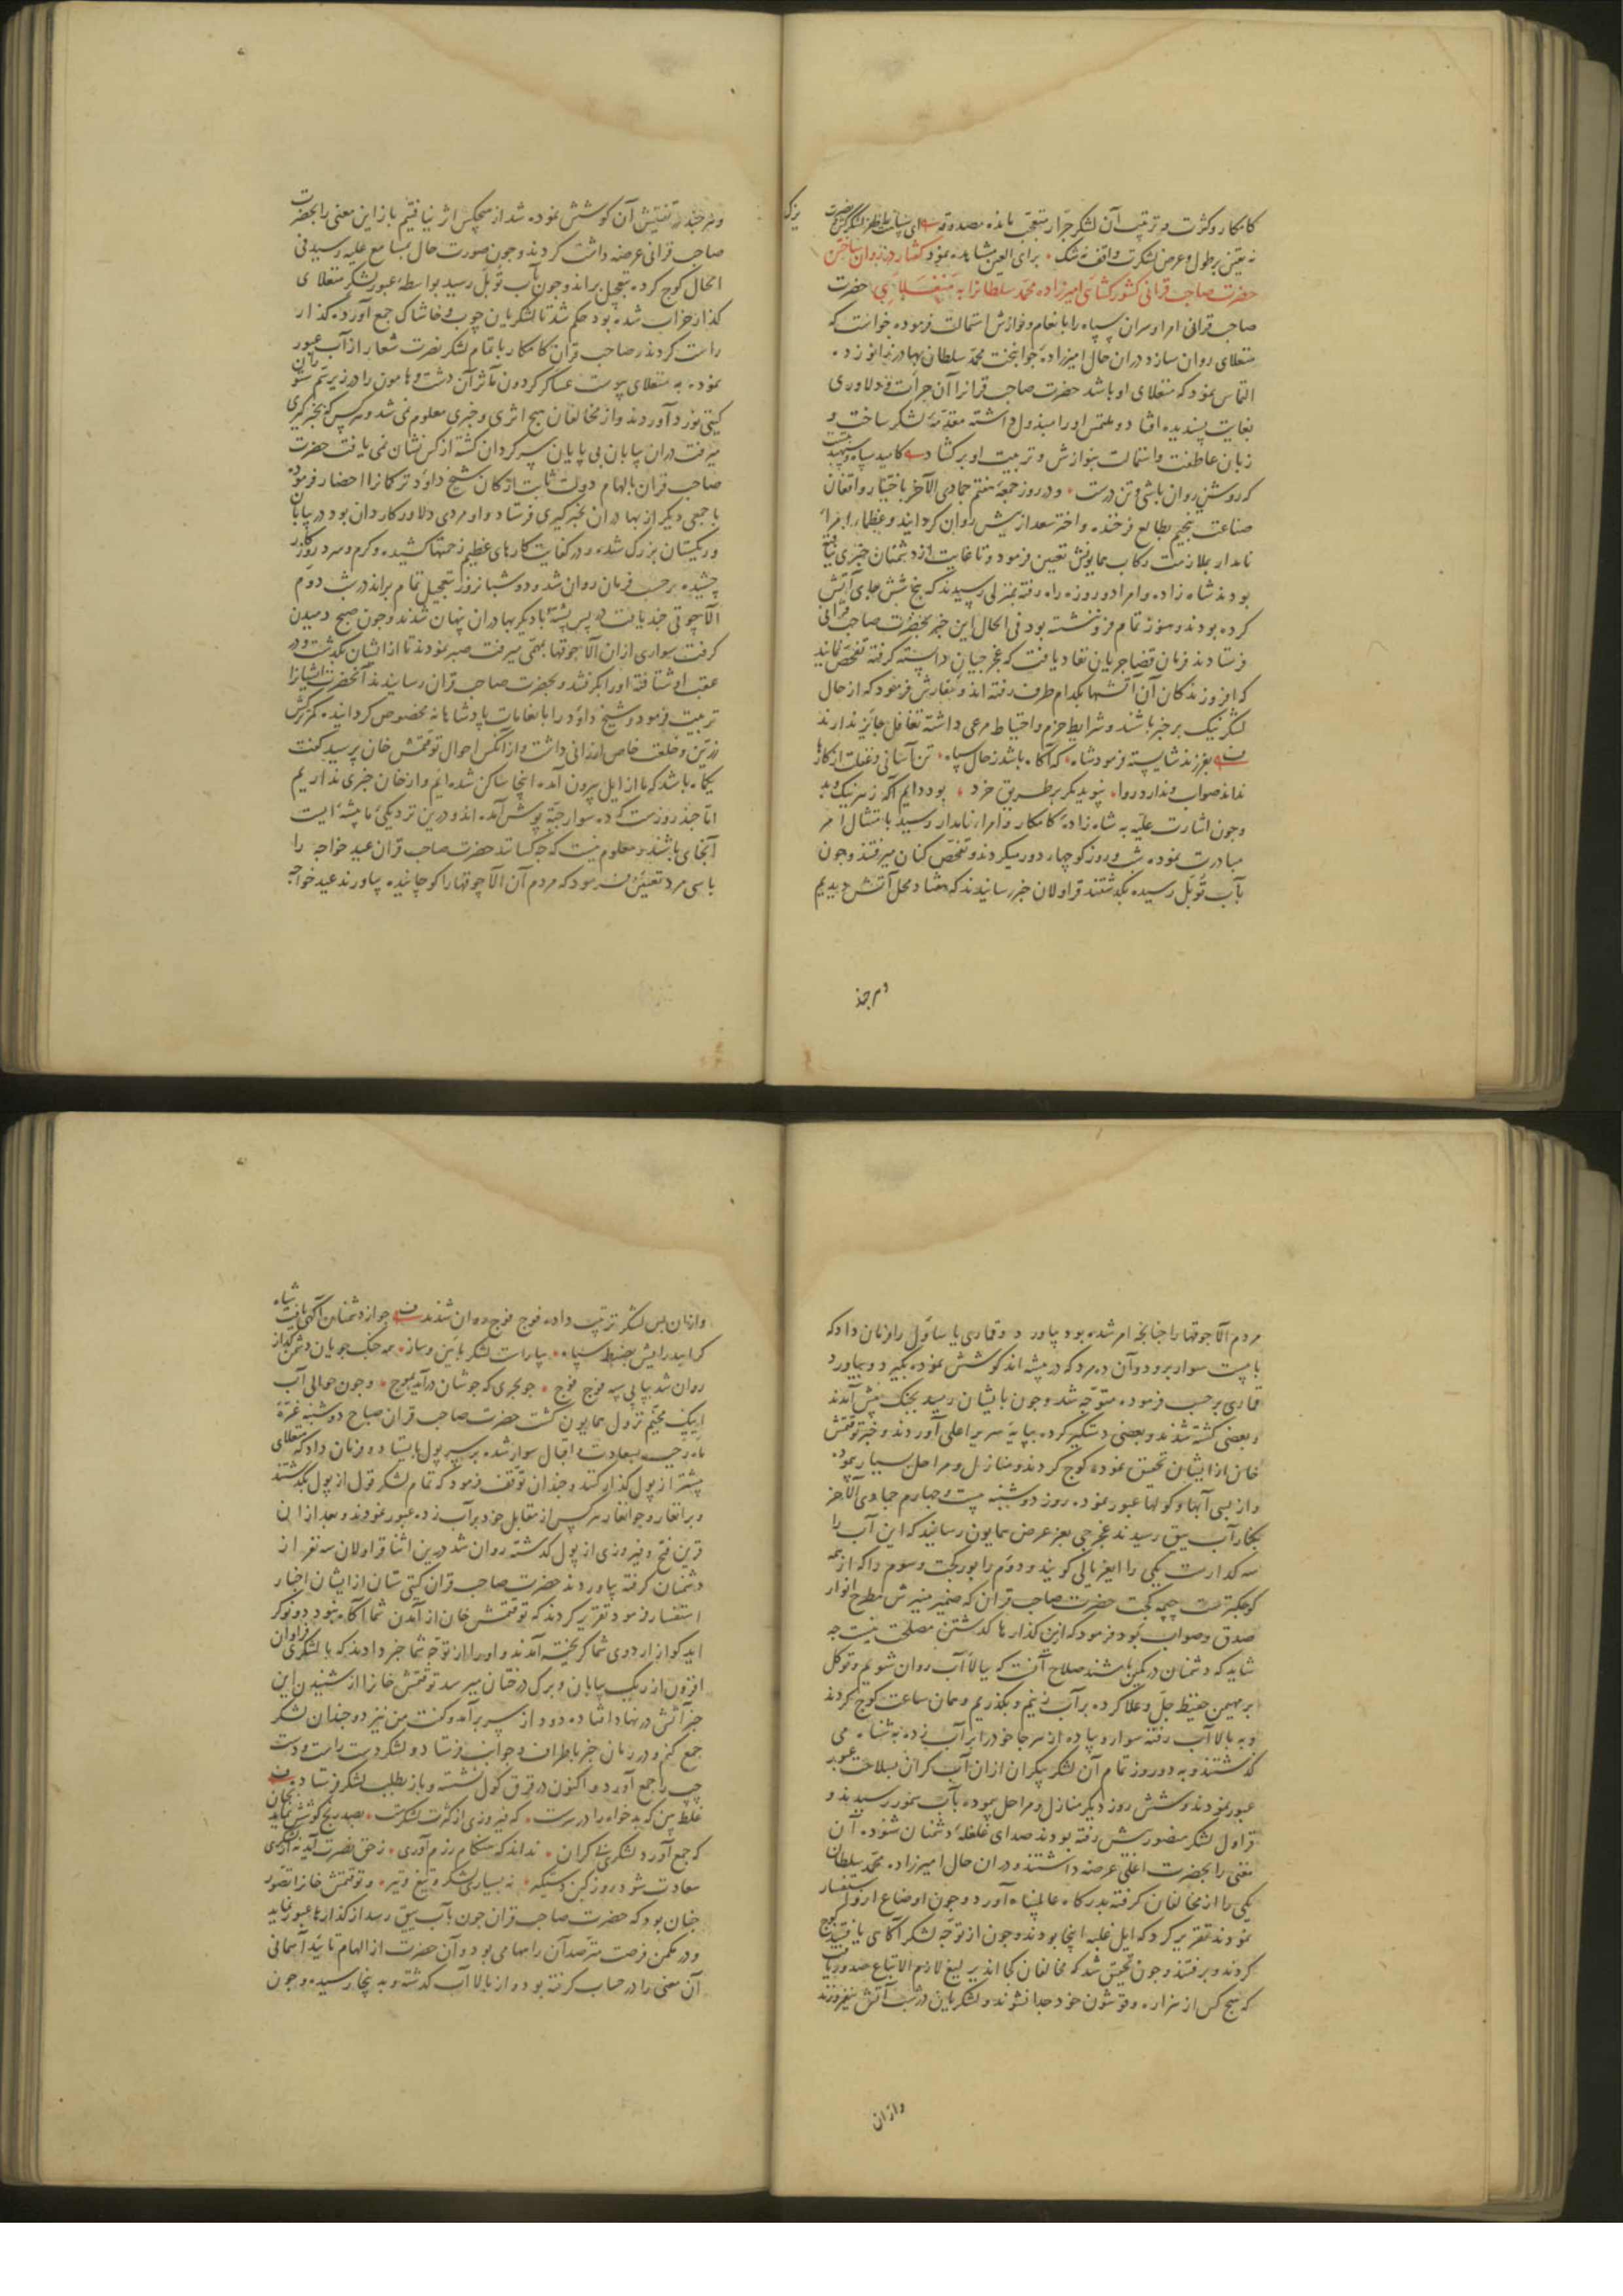 کامکار و کثرت و ترتیب آن لشکر جرار متعجب مانده بصدد
نه یقین بر طول و عرض لشکرت واقف نه شک برای العین مشاهده نمود گفتار در روان ساختن
حضرت صاحب قرانی کشور کشای امیرزاده محمد سلطانرا به منغلای حضرت
صاحب قرانی امرا و سران سپاه را بانعام و نوازش استمالت فرموده خواست که
منغلای روان سازد دران حال امیرزاده جوانبخت محمد سلطان بهادر زانو زد
التماس نمود که منغلای او باشد حضرت صاحب قرانرا آن جرأت و دلاوری
بغایت پسندیده افتاد و ملتمس او را مبذول داشته مقدمه لشکر ساخت و
زبان عاطفت و استمالت بنوازش و تربیت او برکشاد کامید سپاه و سپهبد
که روشن روان باشی و تن درست و در روز جمعه هفتم جمادی الآخر باختیار واقفان
صناعت تنجیم بطالع فرخنده و اختر سعد از پیش روان گردانید و عظماء امراء
نامدار بملازمت رکاب همایونش تعیین فرمود و تا غایت از دشمنان خبری
بودند شاه زاده و امرا دو روزه راه رفته بمنزلی رسیدند که پنج شش جای آتش
کرده بودند و هنوز تمام فرو ننشسته بود فی الحال این خبر بحضرت صاحب قرانی
فرستادند فرمان قضا جریان نفاد یافت که غجرجیان دانسته گرفته تفحص نمایند
که افروزندگان آن آتشها بکدام طرف رفته اند و سفارش فرمود که از حال
لشکر نیک برخبر باشند و شرایط حزم و احتیاط مرعی داشته تغافل جایز ندارند
بفرزند شایسته فرمود شاه که آگاه باشد ز حال سپاه تن آسانی و غفلت از کارها
نداند صواب و ندارد روا نپوید مگر بر طریق خرد بود دایم آگه ز هر نیک و بد
و چون اشارت علیه به شاه زاده کامکار و امراء نامدار رسید بامتثال امر
مبادرت نموده شب و روز کوچهاء دور میکردند و تفحص کنان میرفتند و چون
بآب توبل رسیده بگذشتند قراولان خبر رسانیدند که هفتاد محل آتش دیدیم
و هر چند
و هر چند در تفتیش آن کوشش نموده شد از هیچکس اثر نیافتیم باز این معنی را بحضرت
صاحب قرانی عرضه داشت کردند و چون صورت حال بمسامع علیه رسید فی
الحال کوچ کرده بتعجیل براند و چون بآب توبل رسید بواسطه عبور لشکر منغلای
گذار خراب شده بود حکم شد تا لشکریان چوب و خاشاک جمع آورده گذار
راست کردند و صاحب قران کامکار با تمام لشکر نصرت شعار از آب عبور
نموده به منغلای پیوست عساکر گردون مآثر آن دشت و هامون را در زیر سم ستوران
گیتی نورد آوردند و از مخالفان هیچ اثری و خبری معلوم نمی شد و هر کس که بخبرگیری
میرفت دران بیابان بی پایان سرگردان گشته از کس نشان نمی یافت حضرت
صاحب قران بالهام دولت ثابت ارکان شیخ داود ترکمانرا احضار فرموده
با جمعی دیگر از بهادران بخبرگیری فرستاد و او مردی دلاور کاردان بود در بیابان
و ریگستان بزرگ شده و در کفایت کارهای عظیم زحمتها کشیده و گرم و سرد روزگار
چشیده برحسب فرمان روان شد و دو شبانروز بتعجیل تمام براند در شب دوم
الاچوقی چند یافت در پس پشته با دیگر بهادران پنهان شدند و چون صبح دمیدن
گرفت سواری ازان الاچوقها بمهمی میرفت صبر نمودند تا از ایشان بگذشت و در
عقب او شتافته او را بگرفتند و بحضرت صاحب قران رسانیدند آنحضرت ایشانرا
تربیت فرمود و شیخ داود را بانعامات پادشاهانه مخصوص گردانیده کمر ترکش
زرین و خلعت خاص ارزانی داشت و از آنکس احوال توقتمش خان پرسید گفت
یکماه باشد که ما از ایل بیرون آمده اینجا ساکن شده ایم و از خان خبری نداریم
اما چند روزست که ده سوار جبه پوش آمده اند و درین نزدیکی ما بیشه ایست
آنجا می باشند و معلوم نیست که چه کسانند حضرت صاحب قران عید خواجه را
با سی مرد تعیین فرمود که مردم آن الاچوقها را کوچانیده بیاورند عید خواجه
مردم الاچوقها را چنانچه امر شده بود بیاورد و قماری یساول را فرمان داد که
با بیست سوار برود و آن ده مرد که در بیشه اند کوشش نموده بگیرد و بیاورد
قماری برحسب فرموده متوجه شد و چون بایشان رسید بجنگ پیش آمدند
و بعضی کشته شدند و بعضی دستگیر کرده بپایه سریر اعلی آوردند و خبر توقتمش
خان از ایشان تحقیق نموده کوچ کردند و منازل و مراحل بسیار پیموده
و از بسی آبها و کولها عبور نموده روز دوشنبه بیست و چهارم جمادی الآخر
بکنار آب ییق رسیدند غجرجی بعز عرض همایون رسانید که این آب را
سه گذارست یکی را ایغر یالی گویند و دوم را بورکجت و سوم را که از همه
کوچکترست چپمه کجت حضرت صاحب قران که ضمیر منیرش مطرح انوار
صدق و صواب بود فرمود که ازین گذارها گذشتن مصلحت نیست چه
شاید که دشمنان در کمین باشند صلاح آنست که ببالاء آب روان شویم و توکل
بر مهیمن حفیظ جل و علا کرده بر آب زنیم و بگذریم و همان ساعت کوچ کردند
و به بالاء آب رفته سوار و پیاده از هر جا خود را بر آب زده به شناه می
گذشتند و به دو روز تمام آن لشکر بیکران ازان آب گران بسلامت عبور
عبور نمودند و شش روز دیگر منازل و مراحل پیموده بآب سمور رسیدند و
قراول لشکر منصور پیش رفته بودند صدای غلغله دشمنان شنوده آن
معنی را بحضرت اعلی عرضه داشتند و دران حال امیرزاده محمد سلطان
یکی را از مخالفان گرفته بدرگاه عالمپناه آورد و چون اوضاع ازو استفسار
نمودند تقریر کرد که ایل غلبه اینجا بودند و چون از توجه لشکر آگاهی یافتند کوچ
کردند و برفتند و چون تحقیق شد که مخالفان کجا اند یرلیغ لازم الاتباع صدور یافت
که هیچ کس از هزاره و قوشون خود جدا نشوند و لشکریان در شب آتش نیفروزند
وازان
وازان پس لشکر ترتیب داده فوج فوج روان شدند چو از دشمنان آگهی یافت شاه
گرایید رایش بضبط سپاه بیاراست لشکر بآیین و ساز همه جنگ جویان دشمن گداز
روان شد پیاپی سپه فوج فوج چو بحری که جوشان درآید بموج و چون حوالی آب
اییک مخیم نزول همایون گشت حضرت صاحب قران صباح دوشنبه غره
ماه رجب بسعادت و اقبال سوار شده بر سر پول بایستاد و فرمان داد که منغلای
پیشتر از پول گذار کنند و چندان توقف فرمود که تمام لشکر قول از پول بگذشتند
و برانغار و جوانغار هر کس از مقابل خود بر آب زده عبور نمودند و بعد از انی
قرین فتح و فیروزی از پول گذشته روان شد درین اثنا قراولان سه نفر از
دشمنان گرفته بیاوردند حضرت صاحب قران گیتی ستان از ایشان اخبار
استفسار فرمود تقریر کردند که توقتمش خان از آمدن شما آگاه نبود دو نوکر
ایدکو از اردوی شما گریخته آمدند و او را از توجه شما خبر دادند که با لشکری فراوان
افزون از ریگ بیابان و برگ درختان میرسد توقتمش خانرا از شنیدن این
خبر آتش در نهاد افتاده دود از سر برآمد و گفت من نیز دو چندان لشکر
جمع کنم و در زمان خبر باطراف و جوانب فرستاد و لشکر دست راست و دست
چپ را جمع آورد و اکنون در قرق کول نشسته و باز بطلب لشکر فرستاده
غلط بین که بدخواه را در سرست که فیروزی از کثرت لشکرست بصد رنج کوشش نماید بجان
که جمع آورد لشکری بی کران نداند که هنگام رزم آوری ز حق نصرت آید نه از لشکری
سعادت شود روز کین دستگیر نه بسیاری لشکر و تیغ و تیر و توقتمش خانرا تصور
چنان بود که حضرت صاحب قران چون بآب ییق رسد از گذارها عبور نماید
و در مکمن فرصت مترصد آن راهها می بود و آن حضرت از الهام تایید آسمانی
آن معنی را در حساب گرفته بود و از بالا آب گذشته و به پنجا رسیده و چون